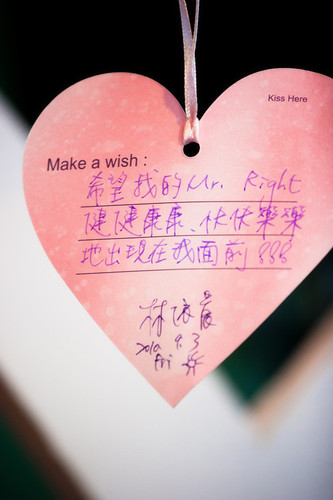 Kiss Here
Make a wish :
希望我的Mr. Right
健健康康、快快樂樂
地出現在我面前 888
林
2010 9.3
Fri